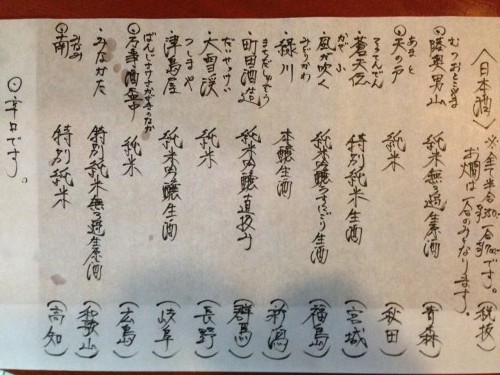 〈日本酒〉 です。(税抜)
お燗は一合のみとなります。
むつおとこやま
◎陸奥男山 純米無ろ過生原酒 (青森)
あま と
◎天の戸 純米 (秋田)
そうてんでん
・蒼天伝 特別純米 (宮城)
かぜ ふ
・風が吹く 純米吟醸うすにごり生酒 (福島)
みどりかわ
・緑川 本醸生酒 (新潟)
まちだしゅぞう
・町田酒造 純米吟醸直汲み (群馬)
だいせっけい
・大雪渓 純米吟醸生酒 (長野)
つしまや
・津島屋 純米吟醸生酒 (岐阜)
◎万事酒盃中 純米 (広島)
・みなかた 特別純米無ろ過生原酒 (和歌山)
みなみ
◎南 特別純米 (高知)
◎辛口です。